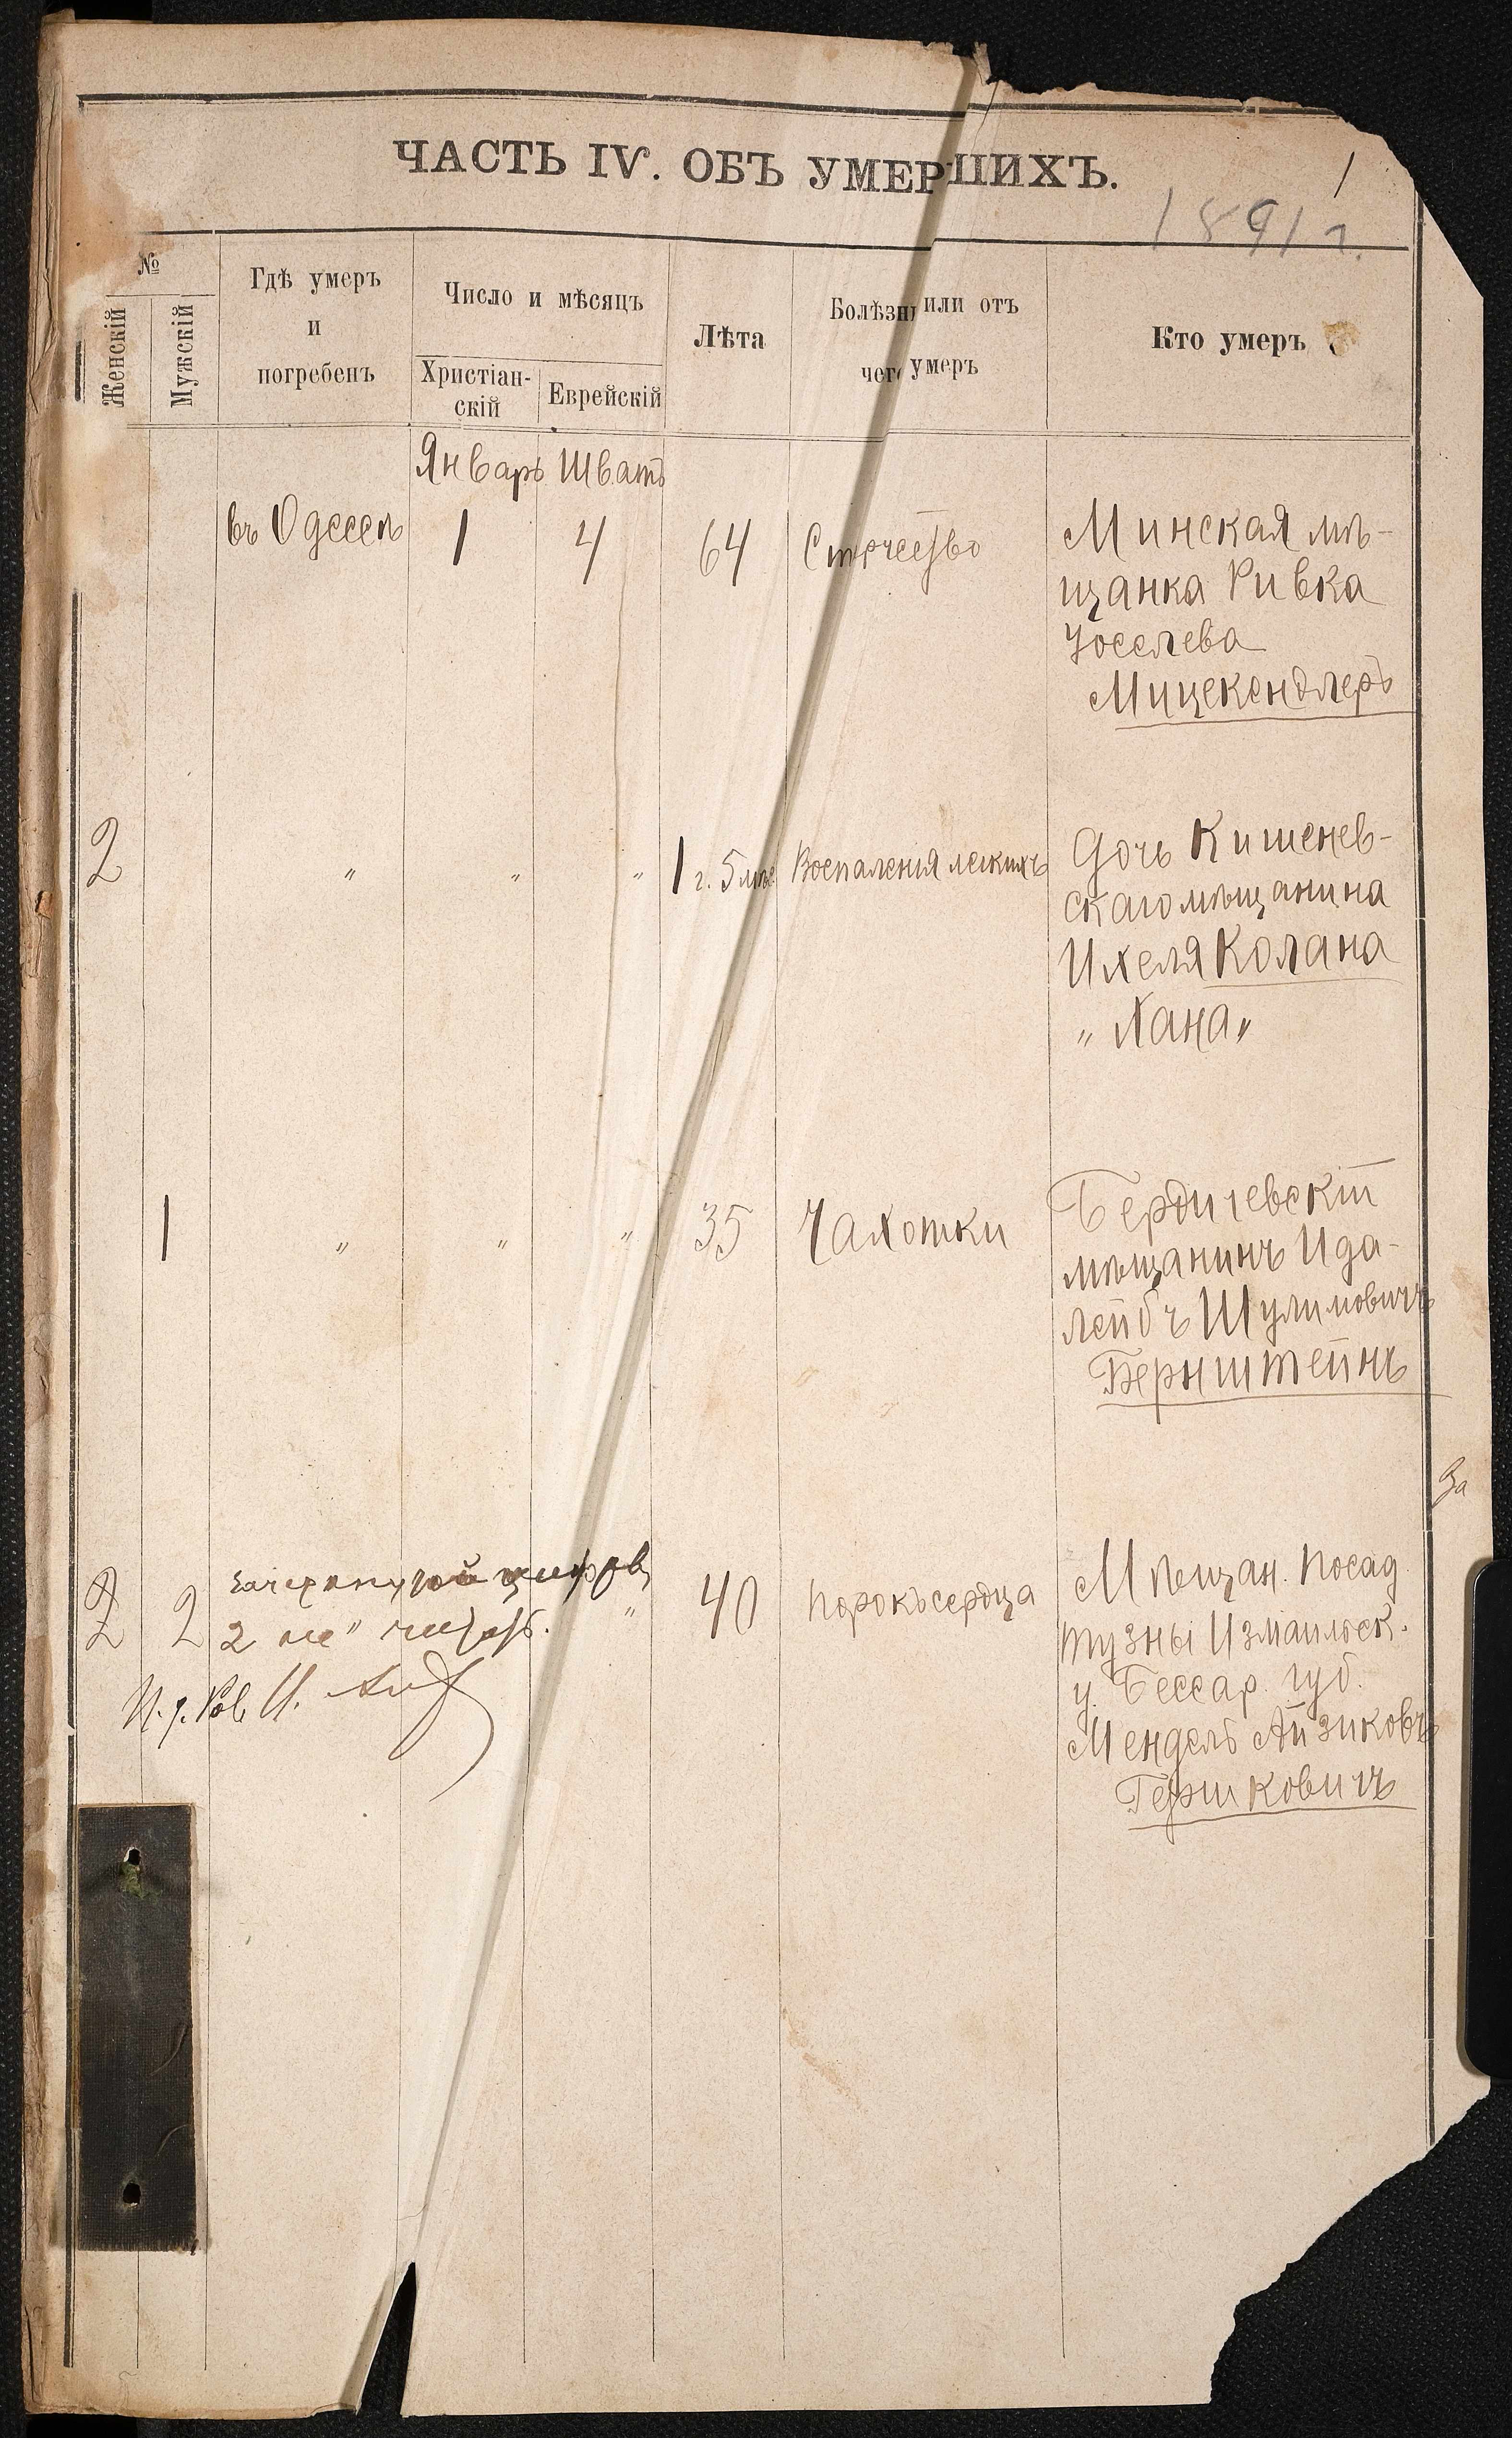 ЧАСТЬ IV. ОБЪ УМЕРШИХЪ.
1
1891 г.
№
Женскій
Мужскій
Гдѣ умеръ
и
погребенъ
Число и мѣсяцъ
Христіан-
скій
Еврейскій
Лѣта
Болѣзнь или отъ
чего умеръ
Кто умеръ
Январь Шватъ
въ Одессѣ 1 4 64 Старчество Минская мѣ-
щанка Ривка
Иоселева
Мицекендлеръ
2 " " " 1 г. 5 мѣс Воспаленія легкихъ Дочь Кишенев-
скаго мѣщанина
Ихеля Колана
„ Хана „
1 " " " 35 Чахотки Бердичевскій
мѣщанинъ Ида-
Лейбъ Шулимовичъ
Бернштейнъ
За
2 2 Зачеркнутой цифры
2 не читать. " 40 Порокъ сердца Мѣщан. посад
Тузлы Измаильск.
у. Бессар. губ.
Мендель Айзиковъ
Гершковичъ
И. д. Рав. И.